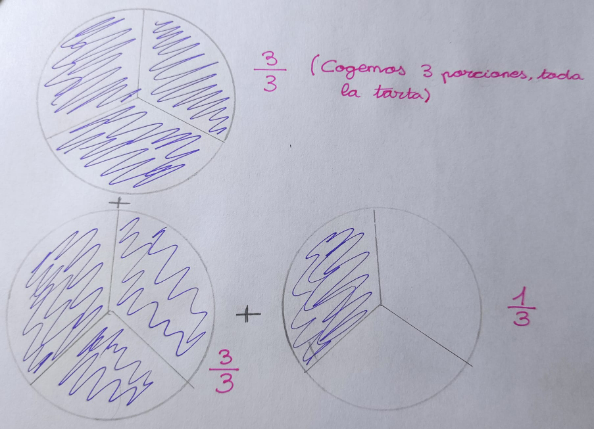 3/3 (Cogemos 3 porciones, toda
la tarta)
+
3/3 + 1/3